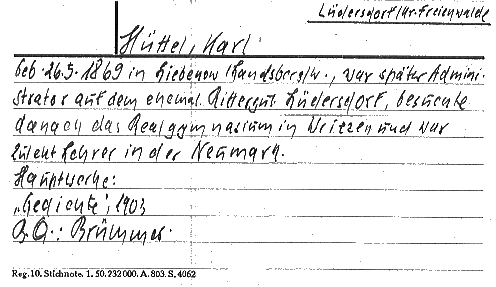 Lüdersdorf/Kr. Freienwalde
Hüttel, Karl
geb. 26.5.1869 in Liebenow/Landsberg/W., war später Admini-
strator auf dem ehemal. Rittergut Lüdersdorf, besuchte
danach das Realgymnasium in Wriezen und war
zuletzt Lehrer in der Neumark.
Hauptwerke:
„Gedichte", 1903
B.Q.: Brümmer.
Reg. 10. Stichnote. 1. 50. 232 000. A. 803. S. 4062